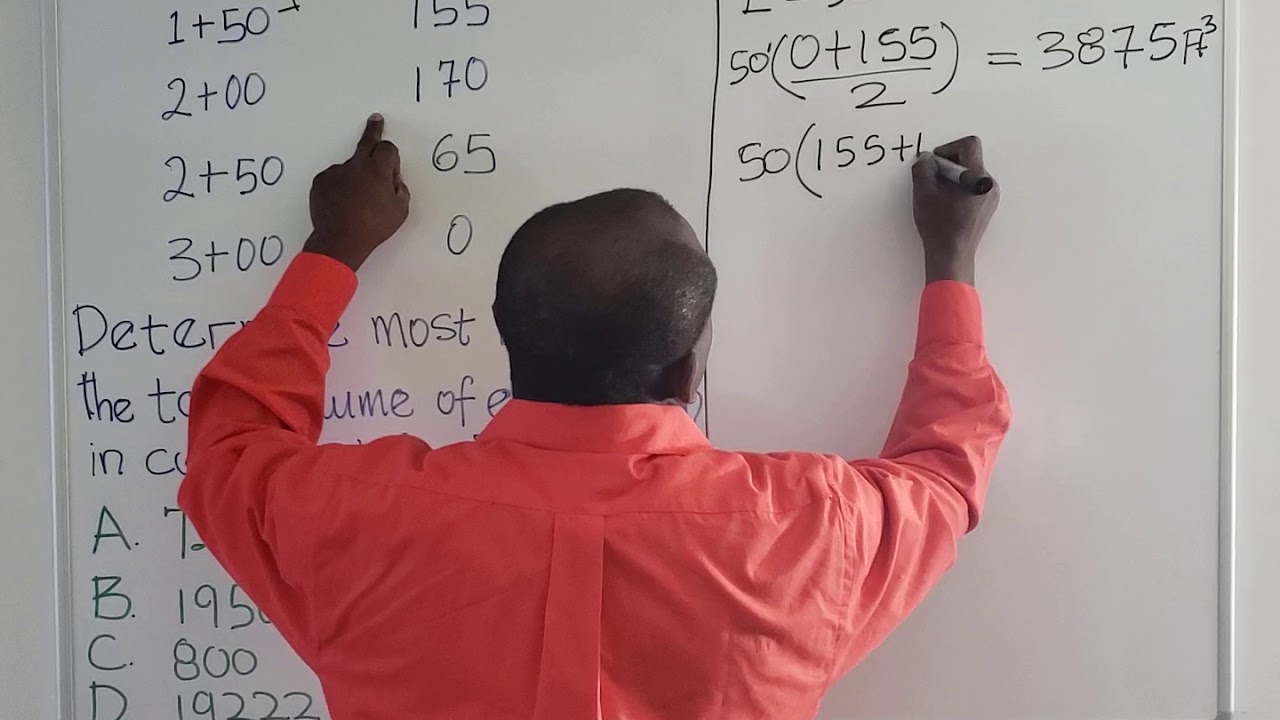 1+50 155
2+00 170
2+50 65
3+00 0
most
the ume of
in
A.
B. 195
C. 800
D 19222
50'(0+155)/2 = 3875 Ft³
50(155+1